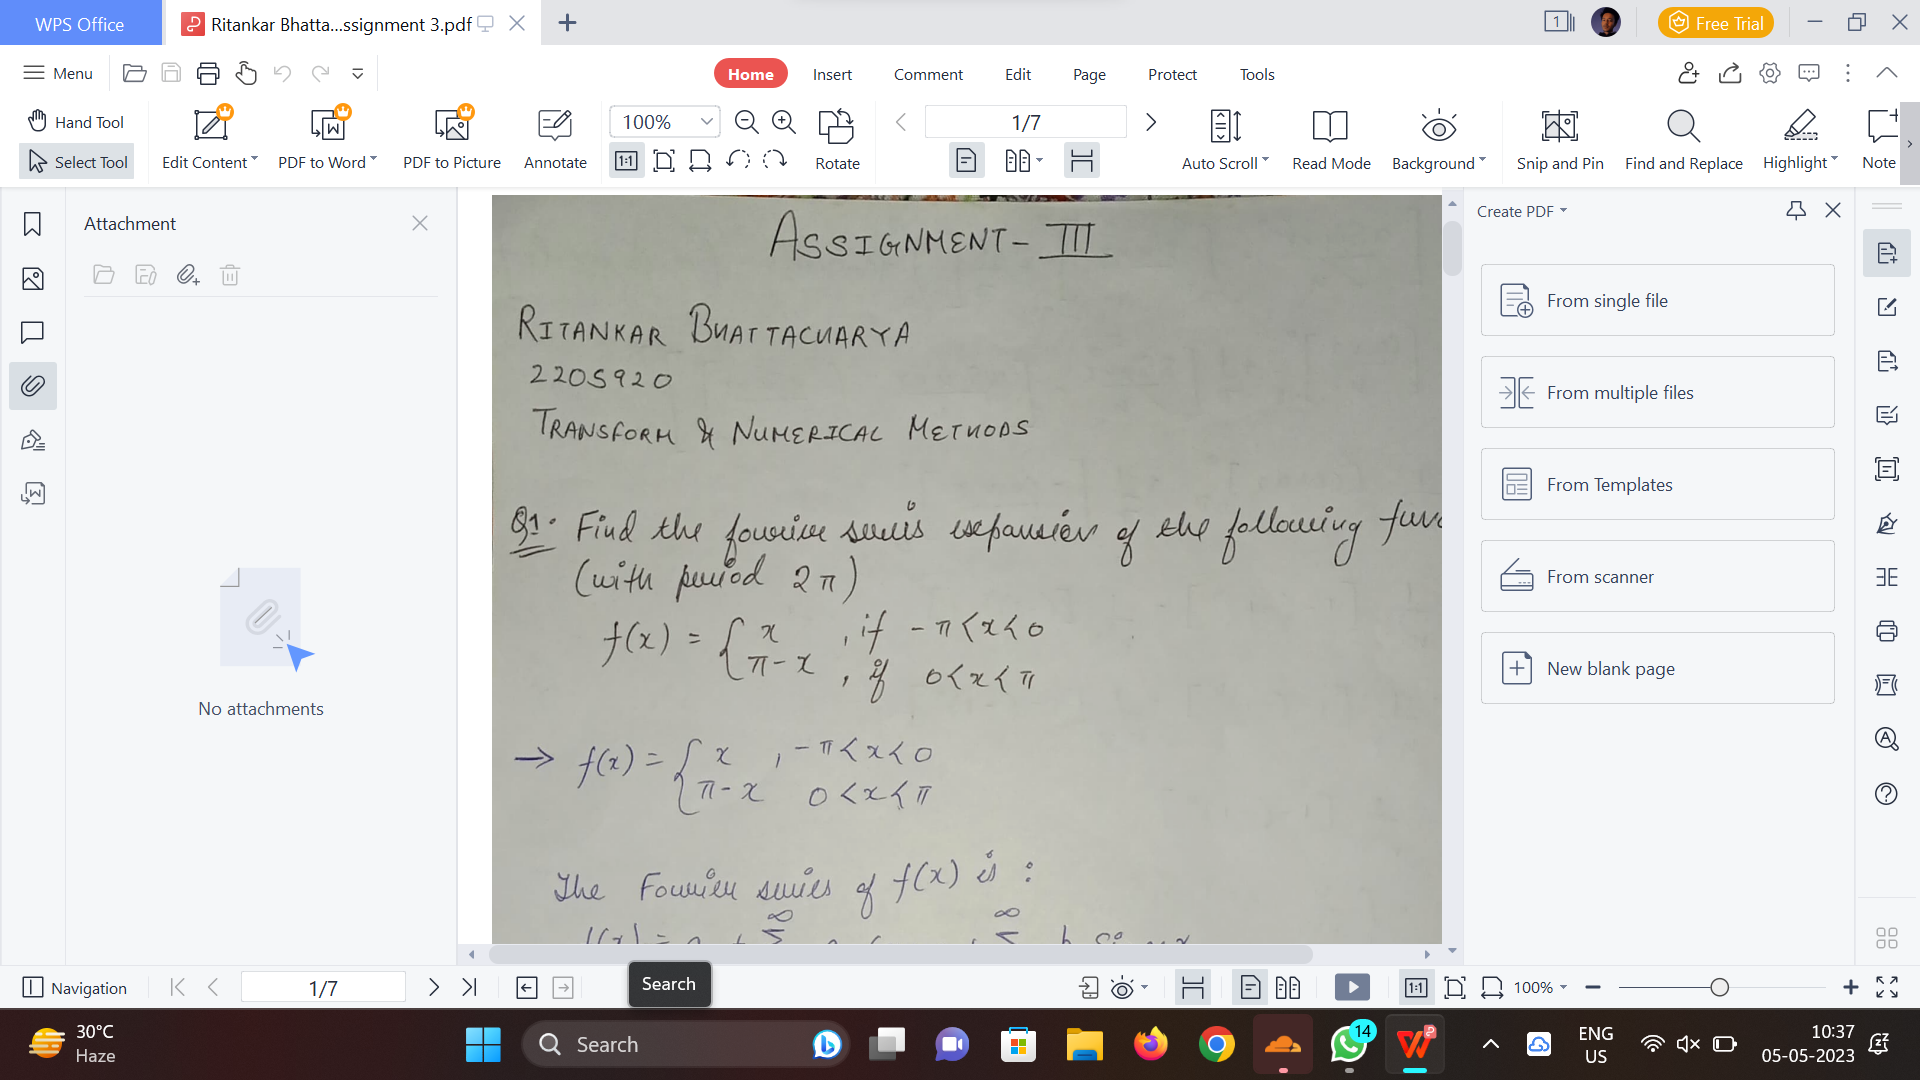 WPS Office
Ritankar Bhatta...ssignment 3.pdf
1
Free Trial
Menu
Home
Insert
Comment
Edit
Page
Protect
Tools
Hand Tool
Select Tool
Edit Content
PDF to Word
PDF to Picture
Annotate
100%
1:1
Rotate
1/7
Auto Scroll
Read Mode
Background
Snip and Pin
Find and Replace
Highlight
Note
Attachment
No attachments
ASSIGNMENT - III
RITANKAR BHATTACHARYA
2205920
TRANSFORM & NUMERICAL METHODS
Q1. Find the fourier series expansion of the following func
(with period 2π)
f(x) = { x , if -π<x<0
π-x , if 0<x<π
→ f(x) = { x , -π<x<0
π-x 0<x<π
The Fourier series of f(x) is :
Create PDF
From single file
From multiple files
From Templates
From scanner
New blank page
Navigation
1/7
Search
1:1
100%
30°C
Haze
Search
14
ENG
US
10:37
05-05-2023